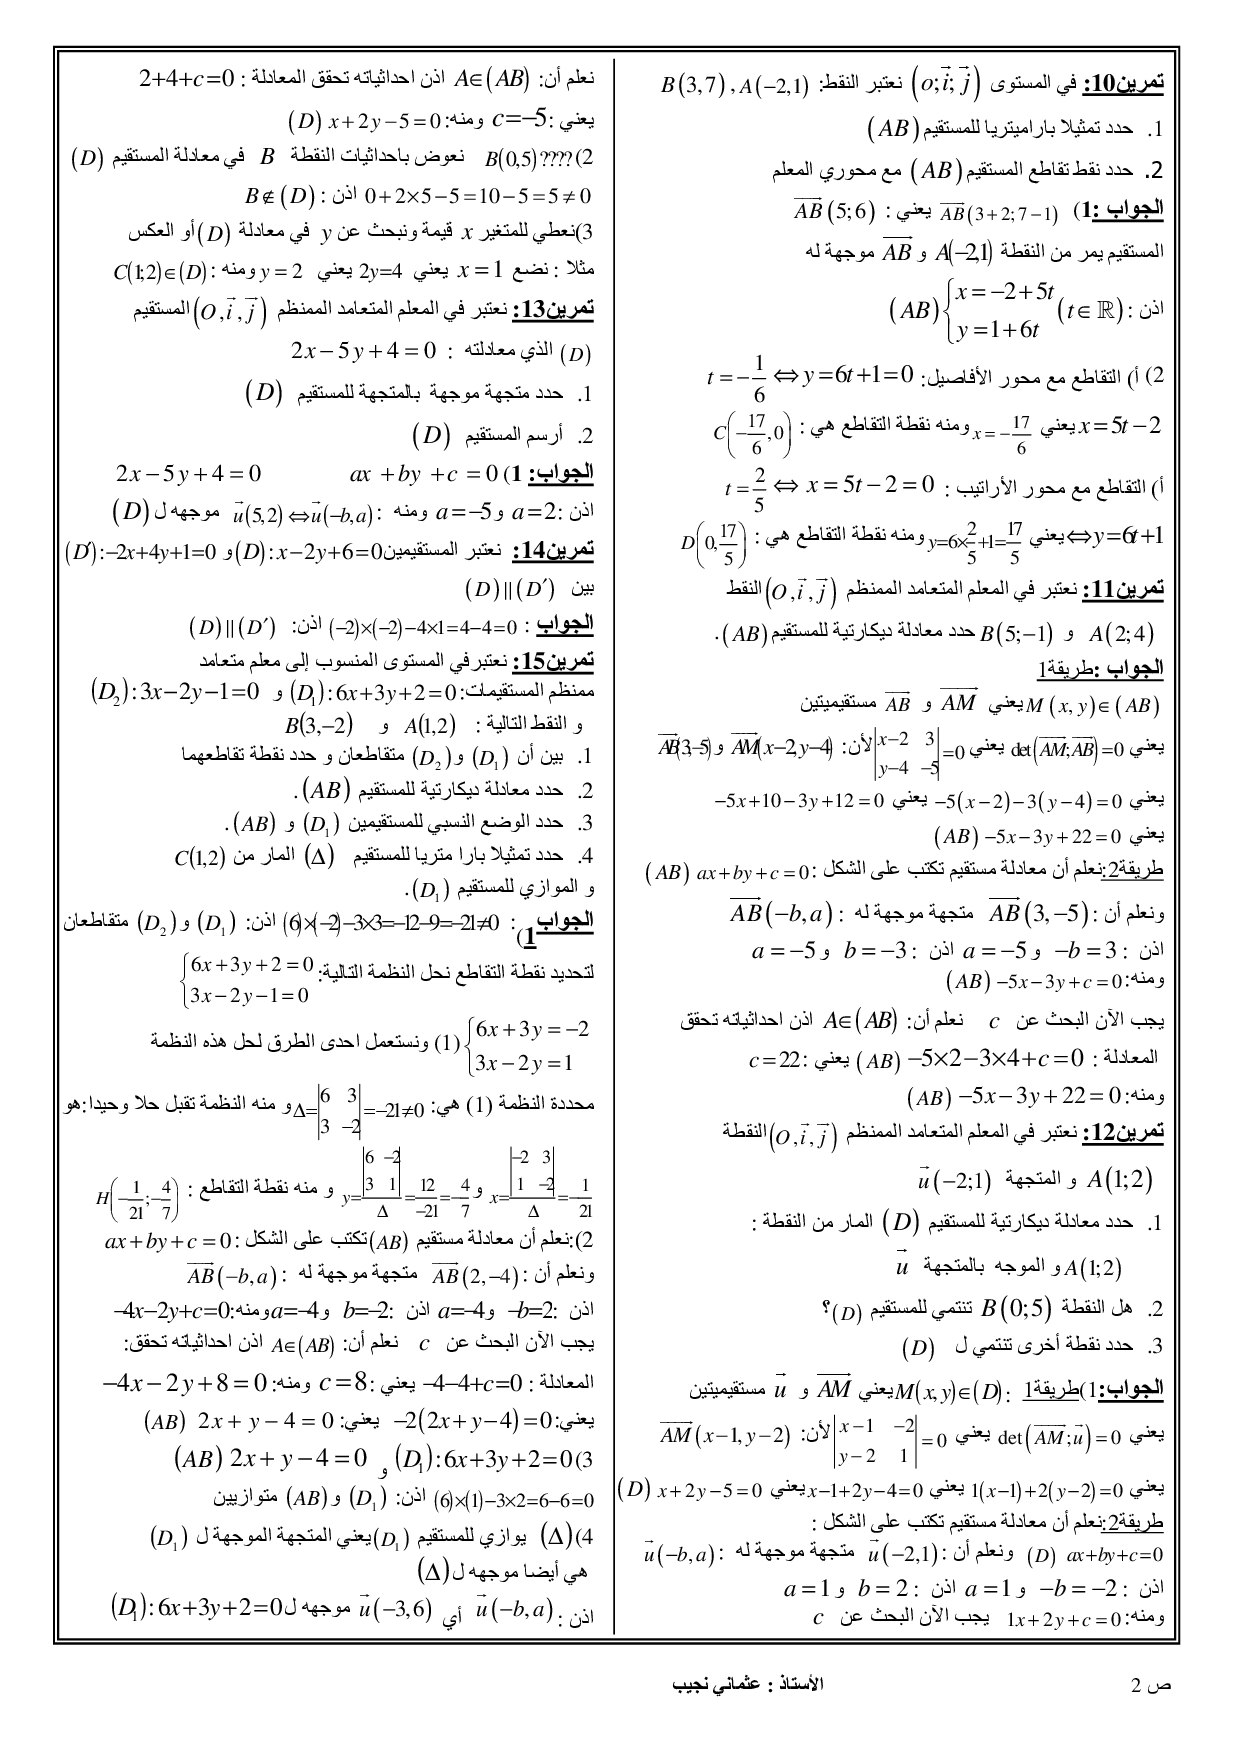 تمرين10: في المستوى (o;i⃗;j⃗) نعتبر النقط: A(−2,1) , B(3,7)
1. حدد تمثيلا باراميتريا للمستقيم (AB)
2. حدد نقط تقاطع المستقيم (AB) مع محوري المعلم
الجواب :1) AB⃗(3+2;7−1) يعني : AB⃗(5;6)
المستقيم يمر من النقطة A(−2,1) و AB⃗ موجهة له
اذن : (AB) {x=−2+5t ; y=1+6t (t∈ℝ)
2) أ) التقاطع مع محور الأفاصيل: y=6t+1=0 ⇔ t=−1/6
x=5t−2 يعني x=−17/6 ومنه نقطة التقاطع هي : C(−17/6,0)
أ) التقاطع مع محور الأراتيب : x=5t−2=0 ⇔ t=2/5
y=6t+1⇔ يعني y=6×2/5+1=17/5 ومنه نقطة التقاطع هي : D(0,17/5)
تمرين11: نعتبر في المعلم المتعامد الممنظم (O,i⃗,j⃗) النقط
A(2;4) و B(5;−1) حدد معادلة ديكارتية للمستقيم (AB).
الجواب :طريقة1
M(x,y)∈(AB) يعني AM⃗ و AB⃗ مستقيميتين
يعني det(AM⃗;AB⃗)=0 يعني |x−2 3 ; y−4 −5|=0 لأن: AM⃗(x−2,y−4) و AB⃗(3,−5)
يعني −5(x−2)−3(y−4)=0 يعني −5x+10−3y+12=0
يعني (AB) −5x−3y+22=0
طريقة2:نعلم أن معادلة مستقيم تكتب على الشكل : (AB) ax+by+c=0
ونعلم أن : AB⃗(3,−5) متجهة موجهة له : AB⃗(−b,a)
اذن : −b=3 و a=−5 اذن : b=−3 و a=−5
ومنه: (AB) −5x−3y+c=0
يجب الآن البحث عن c نعلم أن: A∈(AB) اذن احداثياته تحقق
المعادلة : (AB) −5×2−3×4+c=0 يعني : c=22
ومنه: (AB) −5x−3y+22=0
تمرين12: نعتبر في المعلم المتعامد الممنظم (O,i⃗,j⃗) النقطة
A(1;2) و المتجهة u⃗(−2;1)
1. حدد معادلة ديكارتية للمستقيم (D) المار من النقطة :
A(1;2) و الموجه بالمتجهة u⃗
2. هل النقطة B(0;5) تنتمي للمستقيم (D)؟
3. حدد نقطة أخرى تنتمي ل (D)
الجواب:1)طريقة1 : M(x,y)∈(D) يعني AM⃗ و u⃗ مستقيميتين
يعني det(AM⃗;u⃗)=0 يعني |x−1 −2 ; y−2 1|=0 لأن: AM⃗(x−1,y−2)
يعني 1(x−1)+2(y−2)=0 يعني x−1+2y−4=0 يعني (D) x+2y−5=0
طريقة2:نعلم أن معادلة مستقيم تكتب على الشكل :
(D) ax+by+c=0 ونعلم أن : u⃗(−2,1) متجهة موجهة له : u⃗(−b,a)
اذن : −b=−2 و a=1 اذن : b=2 و a=1
ومنه: 1x+2y+c=0 يجب الآن البحث عن c
نعلم أن: A∈(AB) اذن احداثياته تحقق المعادلة : 2+4+c=0
يعني : c=−5 ومنه: (D) x+2y−5=0
2) B(0,5)???? نعوض باحداثيات النقطة B في معادلة المستقيم (D)
0+2×5−5=10−5=5≠0 اذن : B∉(D)
3)نعطي للمتغير x قيمة ونبحث عن y في معادلة (D) أو العكس
مثلا : نضع x=1 يعني 2y=4 يعني y=2 ومنه : C(1;2)∈(D)
تمرين13: نعتبر في المعلم المتعامد الممنظم (O,i⃗,j⃗) المستقيم
(D) الذي معادلته : 2x−5y+4=0
1. حدد متجهة موجهة بالمتجهة للمستقيم (D)
2. أرسم المستقيم (D)
الجواب: 1) ax+by+c=0 2x−5y+4=0
اذن : a=2 و a=−5 ومنه : u⃗(5,2)⇔u⃗(−b,a) موجهه ل (D)
تمرين14: نعتبر المستقيمين (D):x−2y+6=0 و (D′):−2x+4y+1=0
بين (D)||(D′)
الجواب : (−2)×(−2)−4×1=4−4=0 اذن: (D)||(D′)
تمرين15: نعتبرفي المستوى المنسوب إلى معلم متعامد
ممنظم المستقيمات: (D₁):6x+3y+2=0 و (D₂):3x−2y−1=0
و النقط التالية : A(1,2) و B(3,−2)
1. بين أن (D₁) و (D₂) متقاطعان و حدد نقطة تقاطعهما
2. حدد معادلة ديكارتية للمستقيم (AB).
3. حدد الوضع النسبي للمستقيمين (D₁) و (AB).
4. حدد تمثيلا بارا متريا للمستقيم (Δ) المار من C(1,2)
و الموازي للمستقيم (D₁).
الجواب 1): (6)×(−2)−3×3=−12−9=−21≠0 اذن: (D₁) و (D₂) متقاطعان
لتحديد نقطة التقاطع نحل النظمة التالية: {6x+3y+2=0 ; 3x−2y−1=0
(1) {6x+3y=−2 ; 3x−2y=1 ونستعمل احدى الطرق لحل هذه النظمة
محددة النظمة (1) هي: Δ=|6 3 ; 3 −2|=−21≠0 و منه النظمة تقبل حلا وحيدا:هو
x=|−2 3 ; 1 −2|/Δ=−1/21 و y=|6 −2 ; 3 1|/Δ=12/−21=−4/7 و منه نقطة التقاطع : H(−1/21;−4/7)
2):نعلم أن معادلة مستقيم (AB) تكتب على الشكل : ax+by+c=0
ونعلم أن : AB⃗(2,−4) متجهة موجهة له : AB⃗(−b,a)
اذن : −b=2 و a=−4 اذن : b=−2 و a=−4 ومنه: −4x−2y+c=0
يجب الآن البحث عن c نعلم أن: A∈(AB) اذن احداثياته تحقق:
المعادلة : −4−4+c=0 يعني : c=8 ومنه: −4x−2y+8=0
يعني: −2(2x+y−4)=0 يعني: (AB) 2x+y−4=0
3) (D₁):6x+3y+2=0 و (AB) 2x+y−4=0
(6)×(1)−3×2=6−6=0 اذن: (D₁) و (AB) متوازيين
4) (Δ) يوازي للمستقيم (D₁) يعني المتجهة الموجهة ل (D₁)
هي أيضا موجهه ل (Δ)
اذن : u⃗(−b,a) أي u⃗(−3,6) موجهه ل (D₁):6x+3y+2=0
ص 2 الأستاذ : عثماني نجيب